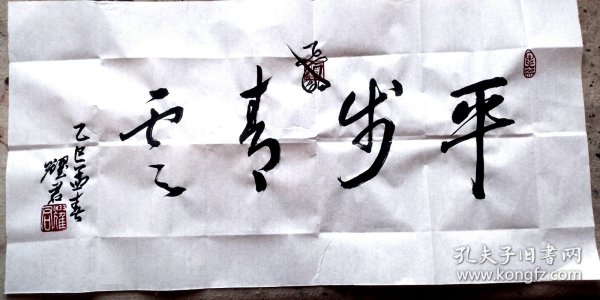 平步青雲
乙巳孟春
耀君
孔夫子旧书网
www.kongfz.com